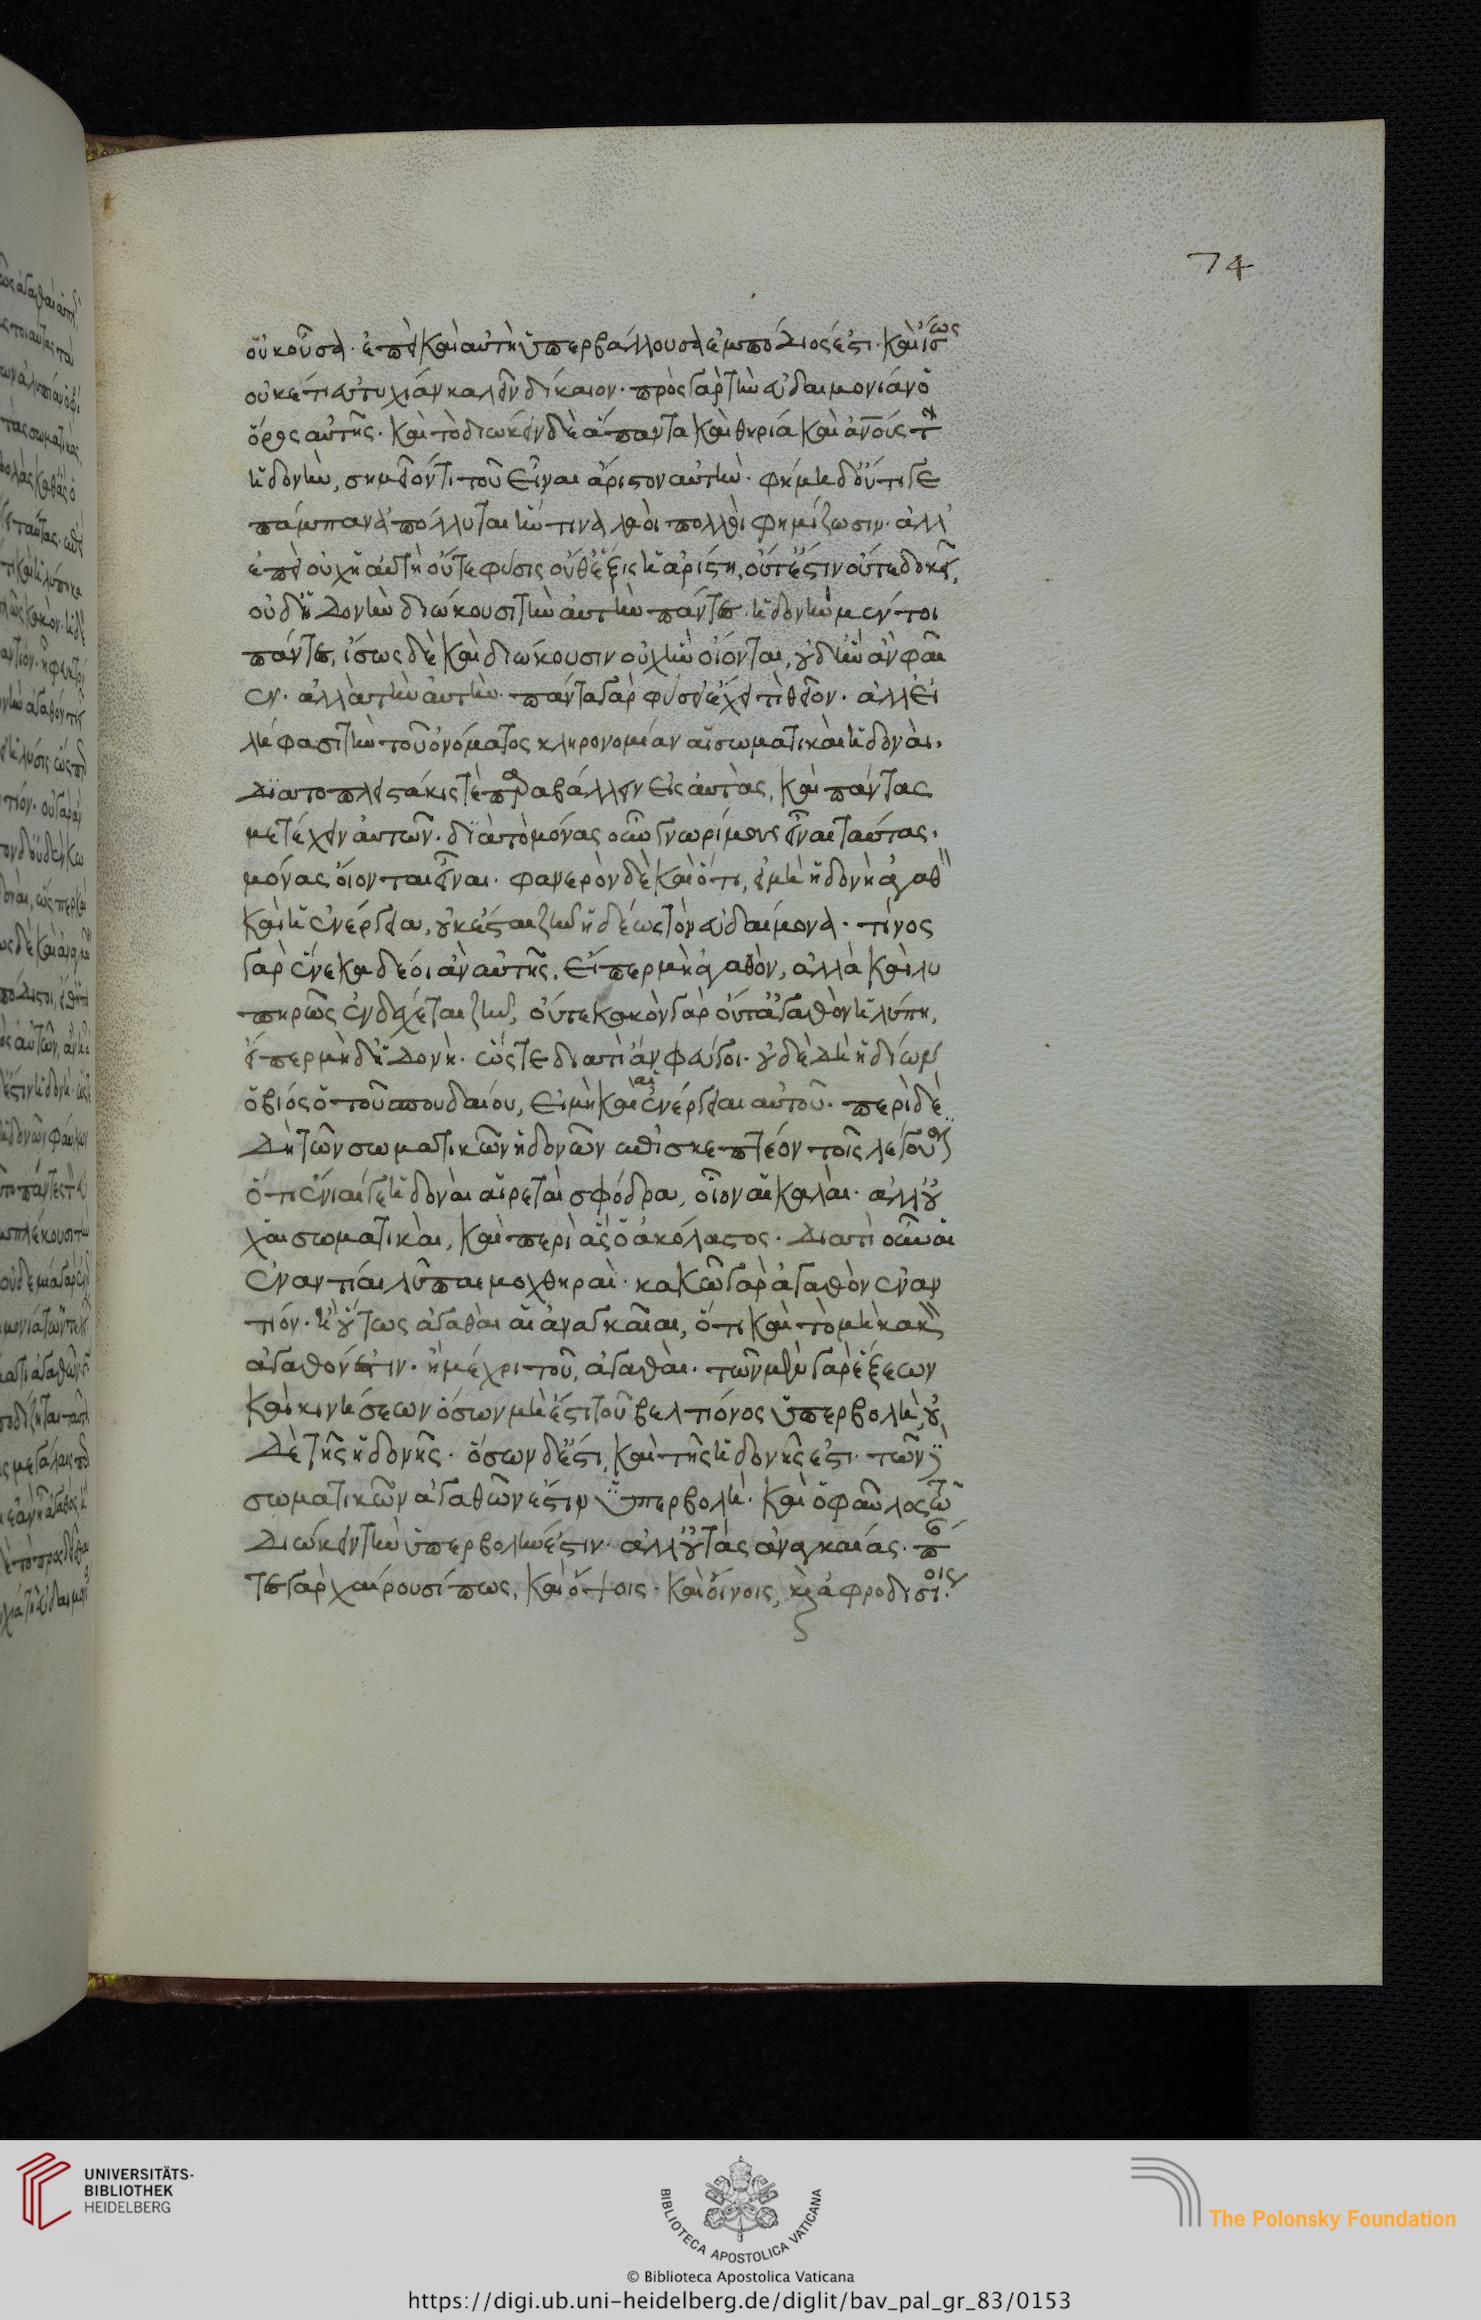 74
οὐκ οὖσα· ἐπεὶ καὶ αὐτὴ ὑπερβάλλουσα ἐμπόδιός ἐστι· καὶ ἴσως
οὐκέτι εὐτυχίαν καλεῖν δίκαιον· πρὸς γὰρ τὴν εὐδαιμονίαν ὁ
ὅρος αὐτῆς· καὶ τὸ διώκειν δὲ ἅπαντα καὶ θηρία καὶ ἀνους τὴν
ἡδονὴν, σημεῖόν τι τοῦ εἶναι ἄριστον αὐτὴν· φήμη δ' οὔτι γε
πάμπαν ἀπόλλυται ἥν τινα λαοὶ πολλοὶ φημίζωσιν· ἀλλ'
ἐπεὶ οὐχ ἡ αὐτὴ οὔτε φύσις οὔθ' ἕξις ἡ ἀρίστη, οὔτ' ἔστιν οὔτε δοκεῖ,
οὐδ' ἡδονὴν διώκουσι τὴν αὐτὴν πάντες· ἡδονὴν μέντοι
πάντες, ἴσως δὲ καὶ διώκουσιν οὐχ ἣν οἴονται, οὐδ' ἣν ἂν φαῖ
εν· ἀλλὰ τὴν αὐτὴν· πάντα γὰρ φύσει ἔχει τι θεῖον· ἀλλ' εἰ
λήφασι τὴν τοῦ ὀνόματος κληρονομίαν αἱ σωματικαὶ ἡδοναὶ,
διὰ τὸ πλειστάκις τὲ παραβάλλειν εἰς αὐτὰς, καὶ πάντας
μετέχειν αὐτῶν· διὰ τὸ μόνας οὖν γνωρίμους εἶναι ταύτας,
μόνας οἴονται εἶναι· φανερὸν δὲ καὶ ὅτι, εἰ μὴ ἡδονὴ ἀγαθὸν
καὶ ἡ ἐνέργεια, οὐκ ἔσται ζῆν ἡδέως τὸν εὐδαίμονα· τίνος
γὰρ ἕνεκα δέοι ἂν αὐτῆς, εἴπερ μὴ ἀγαθὸν, ἀλλὰ καὶ λυ
πηρῶς ἐνδέχεται ζῆν, οὔτε κακὸν γὰρ οὔτ' ἀγαθὸν ἡ λύπη,
εἴπερ μὴ δ' ἡδονὴ· ὥστε διατί ἂν φεύγοι· οὐδὲ δὴ ἡδίων
ὁ βίος ὁ τοῦ σπουδαίου, εἰ μὴ καὶ αἱ ἐνέργειαι αὐτοῦ· περὶ δὲ
δὴ τῶν σωματικῶν ἡδονῶν ἐπισκεπτέον τοῖς λέγουσιν
ὅτι ἔνιαί γε ἡδοναὶ αἱρεταὶ σφόδρα, οἷον αἱ καλαὶ· ἀλλ' οὐ
χ' αἱ σωματικαὶ, καὶ περὶ ἃς ὁ ἀκόλαστος· διατί οὖν αἱ
ἐναντίαι λῦπαι μοχθηραὶ· κακῷ γὰρ ἀγαθὸν ἐναν
τίον· ἢ οὕτως ἀγαθαὶ αἱ ἀναγκαῖαι, ὅτι καὶ τὸ μὴ κακὸν
ἀγαθόν ἐστιν· ἢ μέχρι τοῦ, ἀγαθαὶ· τῶν μὲν γὰρ ἕξεων
καὶ κινήσεων ὅσων μὴ ἔστι τοῦ βελτίονος ὑπερβολὴ, οὐ
δὲ τῆς ἡδονῆς· ὅσων δ' ἔστι, καὶ τῆς ἡδονῆς ἐστι· τῶν δὲ
σωματικῶν ἀγαθῶν ἔστιν ὑπερβολὴ· καὶ ὁ φαῦλος τῷ
διώκειν τὴν ὑπερβολὴν ἔστιν· ἀλλ' οὐ τὰς ἀναγκαίας· πάν
τες γὰρ χαίρουσί πως, καὶ ὄψοις· καὶ οἴνοις, καὶ ἀφροδισίοις·
UNIVERSITÄTS-
BIBLIOTHEK
HEIDELBERG
BIBLIOTECA APOSTOLICA VATICANA
The Polonsky Foundation
© Biblioteca Apostolica Vaticana
https://digi.ub.uni-heidelberg.de/diglit/bav_pal_gr_83/0153